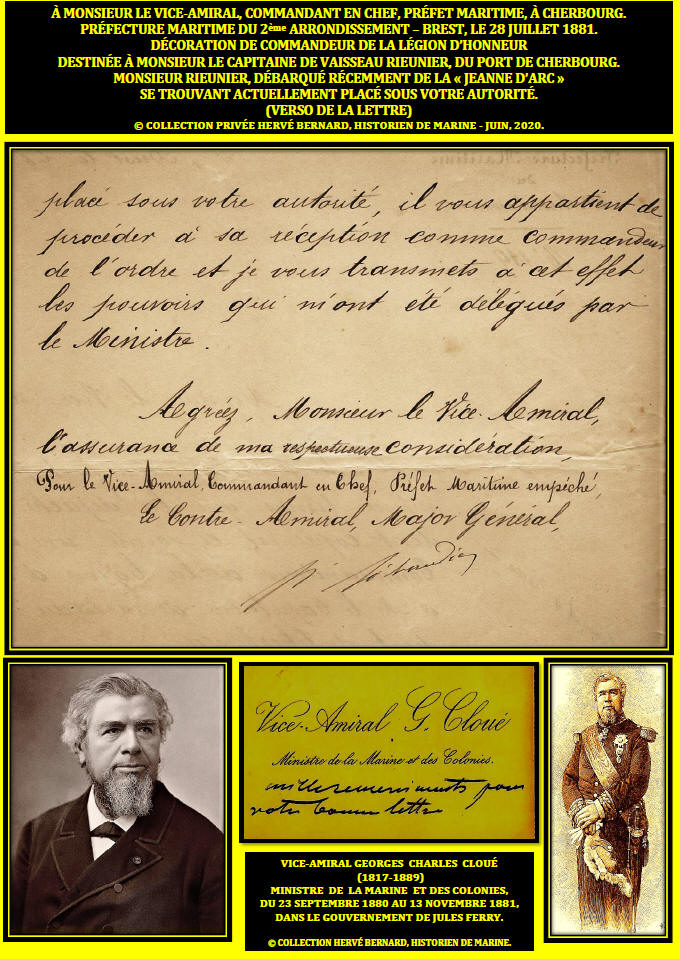 À MONSIEUR LE VICE-AMIRAL, COMMANDANT EN CHEF, PRÉFET MARITIME, À CHERBOURG.
PRÉFECTURE MARITIME DU 2ème ARRONDISSEMENT – BREST, LE 28 JUILLET 1881.
DÉCORATION DE COMMANDEUR DE LA LÉGION D'HONNEUR
DESTINÉE À MONSIEUR LE CAPITAINE DE VAISSEAU RIEUNIER, DU PORT DE CHERBOURG.
MONSIEUR RIEUNIER, DÉBARQUÉ RÉCEMMENT DE LA « JEANNE D'ARC »
SE TROUVANT ACTUELLEMENT PLACÉ SOUS VOTRE AUTORITÉ.
(VERSO DE LA LETTRE)
© COLLECTION PRIVÉE HERVÉ BERNARD, HISTORIEN DE MARINE - JUIN, 2020.
placé sous votre autorité, il vous appartient de
procéder à sa réception comme commandeur
de l'ordre et je vous transmets à cet effet
les pouvoirs qui m'ont été délégués par
le Ministre.
Agréez, Monsieur le Vice-Amiral,
l'assurance de ma respectueuse considération,
Pour le Vice-Amiral, Commandant en Chef, Préfet Maritime empêché,
Le Contre-Amiral, Major Général,
Vice-Amiral G. Cloué
Ministre de la Marine et des Colonies.
mille remerciements pour
votre bonne lettre
VICE-AMIRAL GEORGES CHARLES CLOUÉ
(1817-1889)
MINISTRE DE LA MARINE ET DES COLONIES,
DU 23 SEPTEMBRE 1880 AU 13 NOVEMBRE 1881,
DANS LE GOUVERNEMENT DE JULES FERRY.
© COLLECTION HERVÉ BERNARD, HISTORIEN DE MARINE.